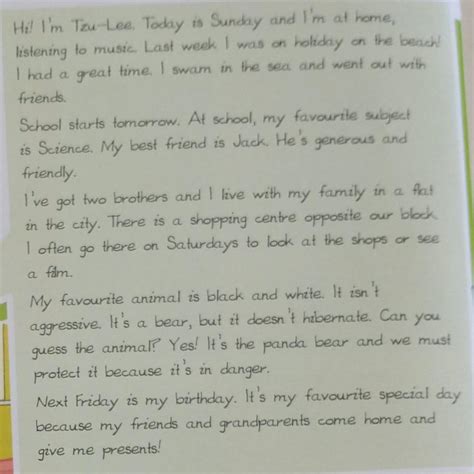 Hi! I'm Tzu-Lee. Today is Sunday and I'm at home,
listening to music. Last week I was on holiday on the beach!
I had a great time. I swam in the sea and went out with
friends.
School starts tomorrow. At school, my favourite subject
is Science. My best friend is Jack. He's generous and
friendly.
I've got two brothers and I live with my family in a flat
in the city. There is a shopping centre opposite our block.
I often go there on Saturdays to look at the shops or see
a film.
My favourite animal is black and white. It isn't
aggressive. It's a bear, but it doesn't hibernate. Can you
guess the animal? Yes! It's the panda bear and we must
protect it because it's in danger.
Next Friday is my birthday. It's my favourite special day
because my friends and grandparents come home and
give me presents!